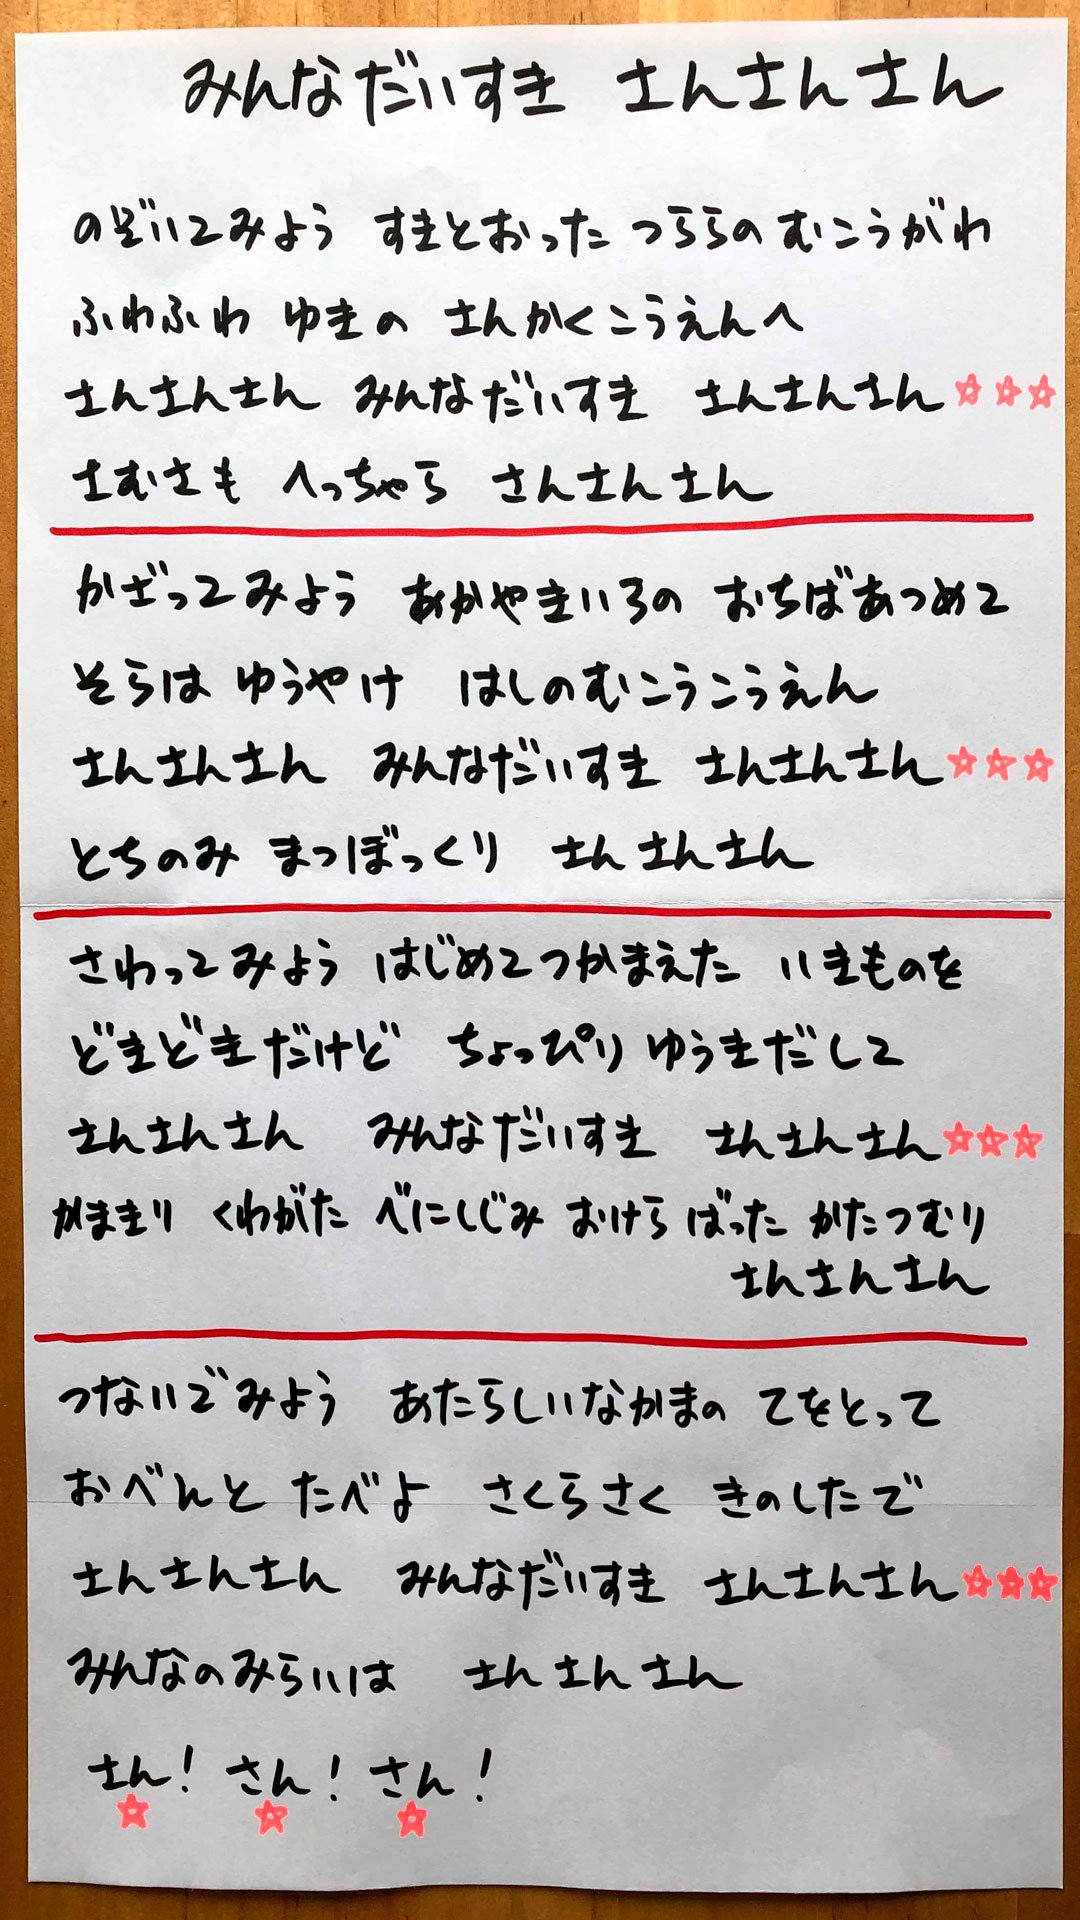 みんなだいすき さんさんさん
のぞいてみよう すきとおった つららの むこうがわ
ふわふわ ゆきの さんかくこうえんへ
さんさんさん みんなだいすき さんさんさん☆☆☆
さむさも へっちゃら さんさんさん
かざってみよう あかやきいろの おちばあつめて
そらは ゆうやけ はしのむこうこうえん
さんさんさん みんなだいすき さんさんさん☆☆☆
とちのみ まつぼっくり さんさんさん
さわってみよう はじめてつかまえた いきものを
どきどきだけど ちょっぴり ゆうきだして
さんさんさん みんなだいすき さんさんさん☆☆☆
かまきり くわがた べにしじみ おけら ばった かたつむり
さんさんさん
つないでみよう あたらしいなかまの てをとって
おべんと たべよ さくらさく きのしたで
さんさんさん みんなだいすき さんさんさん☆☆☆
みんなのみらいは さんさんさん
さん! さん! さん!
☆ ☆ ☆